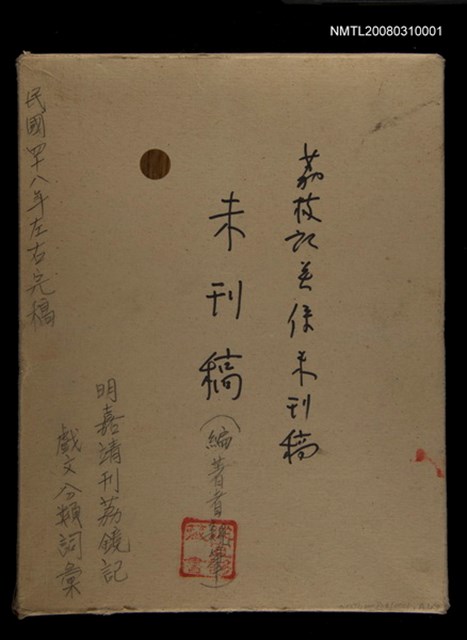 NMTL20080310001
荔枝記並係未刊稿
未刊稿(編著者
藏書
明嘉靖刊荔鏡記
戲文分類詞彙
民國四十八年左右完稿